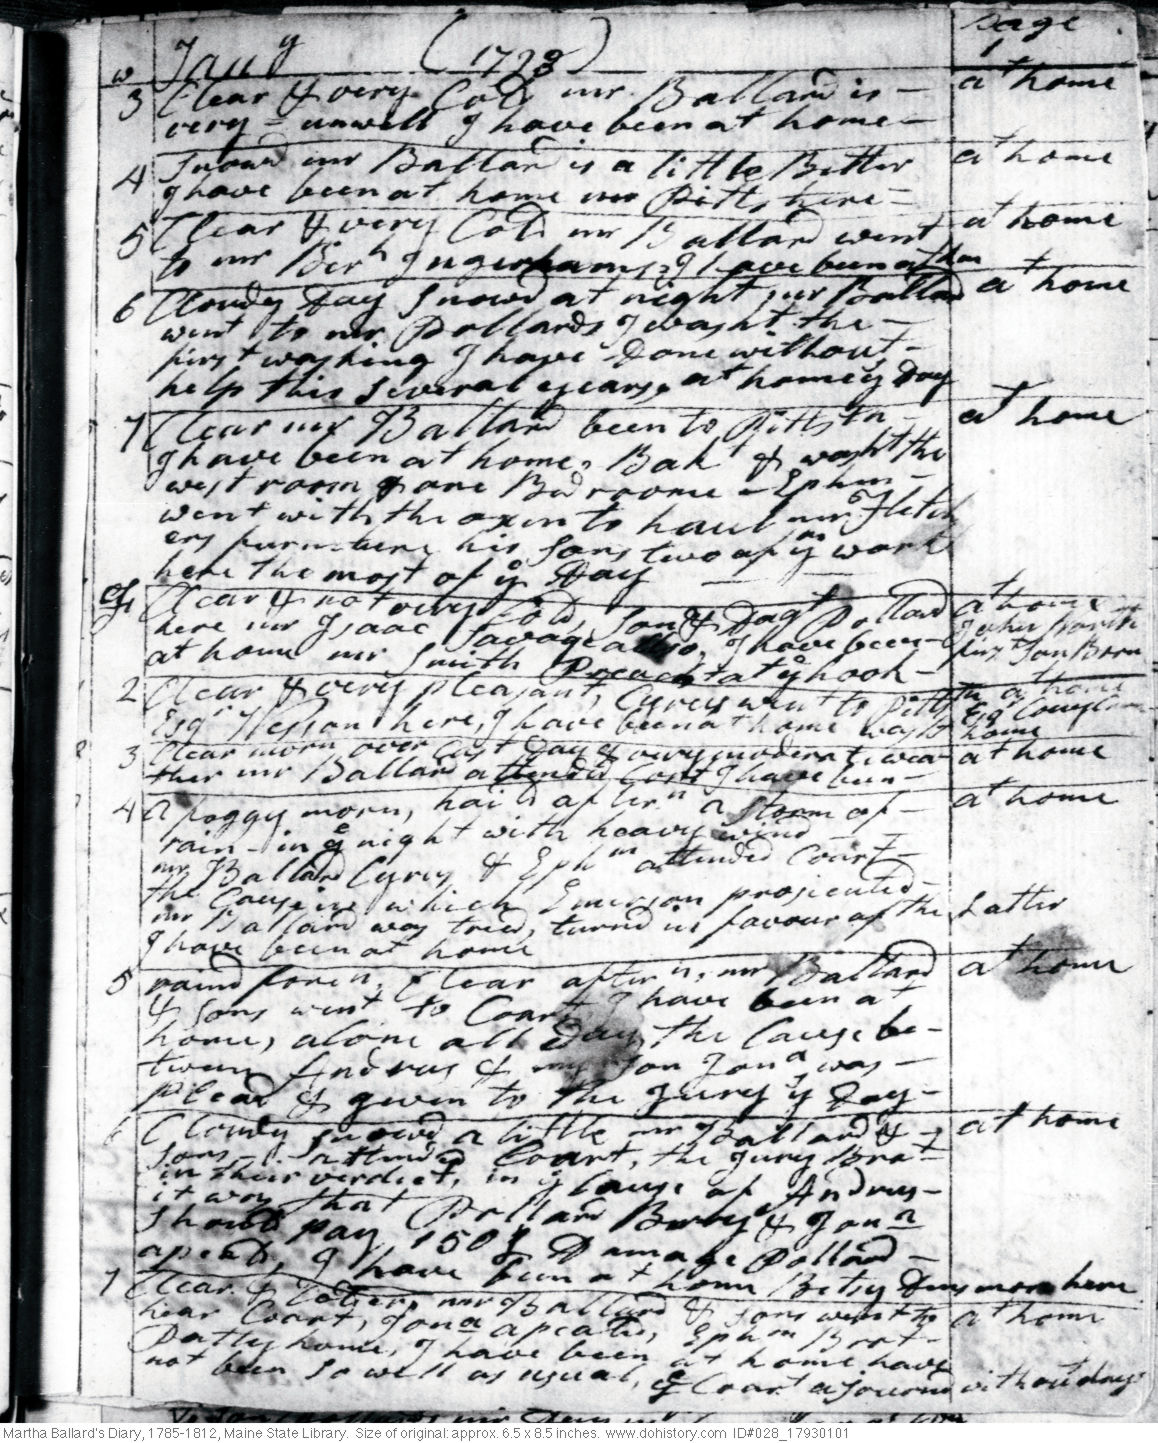 Jany (1793) page 1
w 3 Clear & very Cold mr Ballard is - at home
very - unwell I have been at home -
4 Snowd mr Ballard is a little Better at home
I have been at home mr Pitts here -
5 Clear & very Cold mr Ballard went at home
to mr Berh Ingerhams, I have been at hom
6 Cloudy Day Snowd at night, mr Ballard at home
went to mr Pollards I washt the -
first washing I have Done without -
help this several years, at home ys Day
7 Clear mr Ballard been to Pittstn - at home
I have been at home, Bakt & washt the
west room & one Bedroome - Ephm -
went with the oxen to haul mr Fletch
ers furniture his sons two of ym work
here the most of ye Day
Clear & not very Cold, Son & Dagt Pollard at home
here mr Isaac Savage allso, I have been -
at home mr Smith Preacht at ye hook - Son Born
2 Clear & very pleasant, Cyrus went to Pittstn at home
Esqr Hesson here, I have been at home washt home
3 Clear morn over Cast Day & very moderate wea at home
ther mr Ballard attended Cort I have been -
4 a foggy morn, haild aftern a storm of - at home
rain - in ye night with heavy wind -
mr Ballard Cyrus & Ephm attended Court -
the Cause in which Emerson prosicuted -
mr Ballard was tried, turnd in favour of the Latter
I have been at home
5 raind foren, Clear aftern, mr Ballard at home
& sons went to Court I have been at
home, alone all Day, the Cause be -
tween Andrus & my son Jona, was -
Plead & given to the Jury ys Day -
6 Cloudy snowd a little mr Ballard & at home
sons - attended Court, the Jury Brot -
in their verdict, in ye Cause of Andrus -
it was that Pollard & Jona
should pay 150 £ Damage Pollard -
apeald, I have been at home Betsy Densmore here
7 Clear & Colder, mr Ballard & sons went to at home
hear Court, Jona apeald, Ephm Brot -
Patty home, I have been at home have
not been so well as usual, ye Court ajournd without day
Martha Ballard's Diary, 1785-1812, Maine State Library. Size of original: approx. 6.5 x 8.5 inches. www.dohistory.com ID#028_17930101